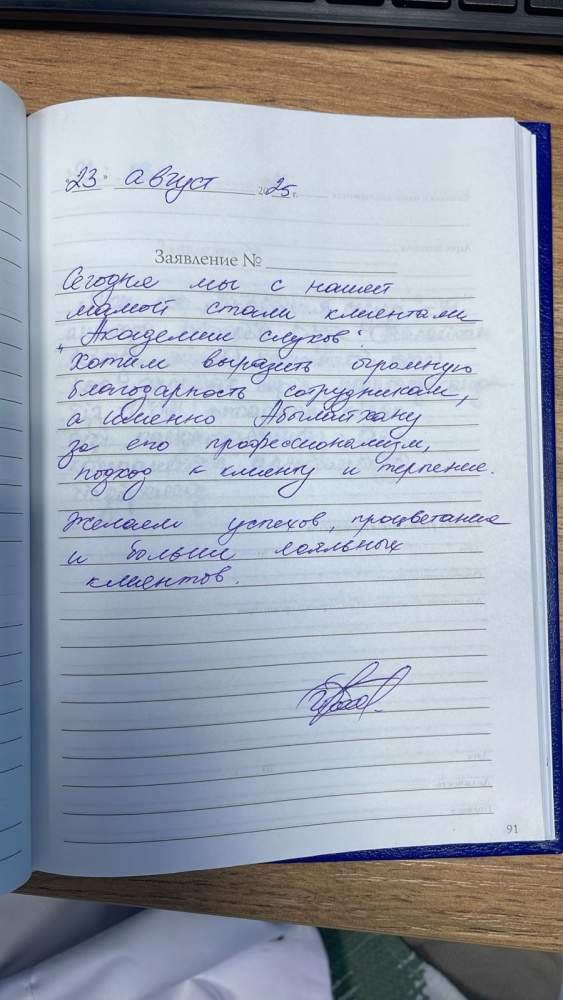 "23" август 2025 г.
Заявление №
Сегодня мы с нашей
мамой стали клиентами
"Академии слухов".
Хотим выразить огромную
благодарность сотрудникам,
а именно Абылайхану
за его профессионализм,
подход к клиенту и терпение.
Желаем успехов, процветания
и больши лояльных
клиентов.
91